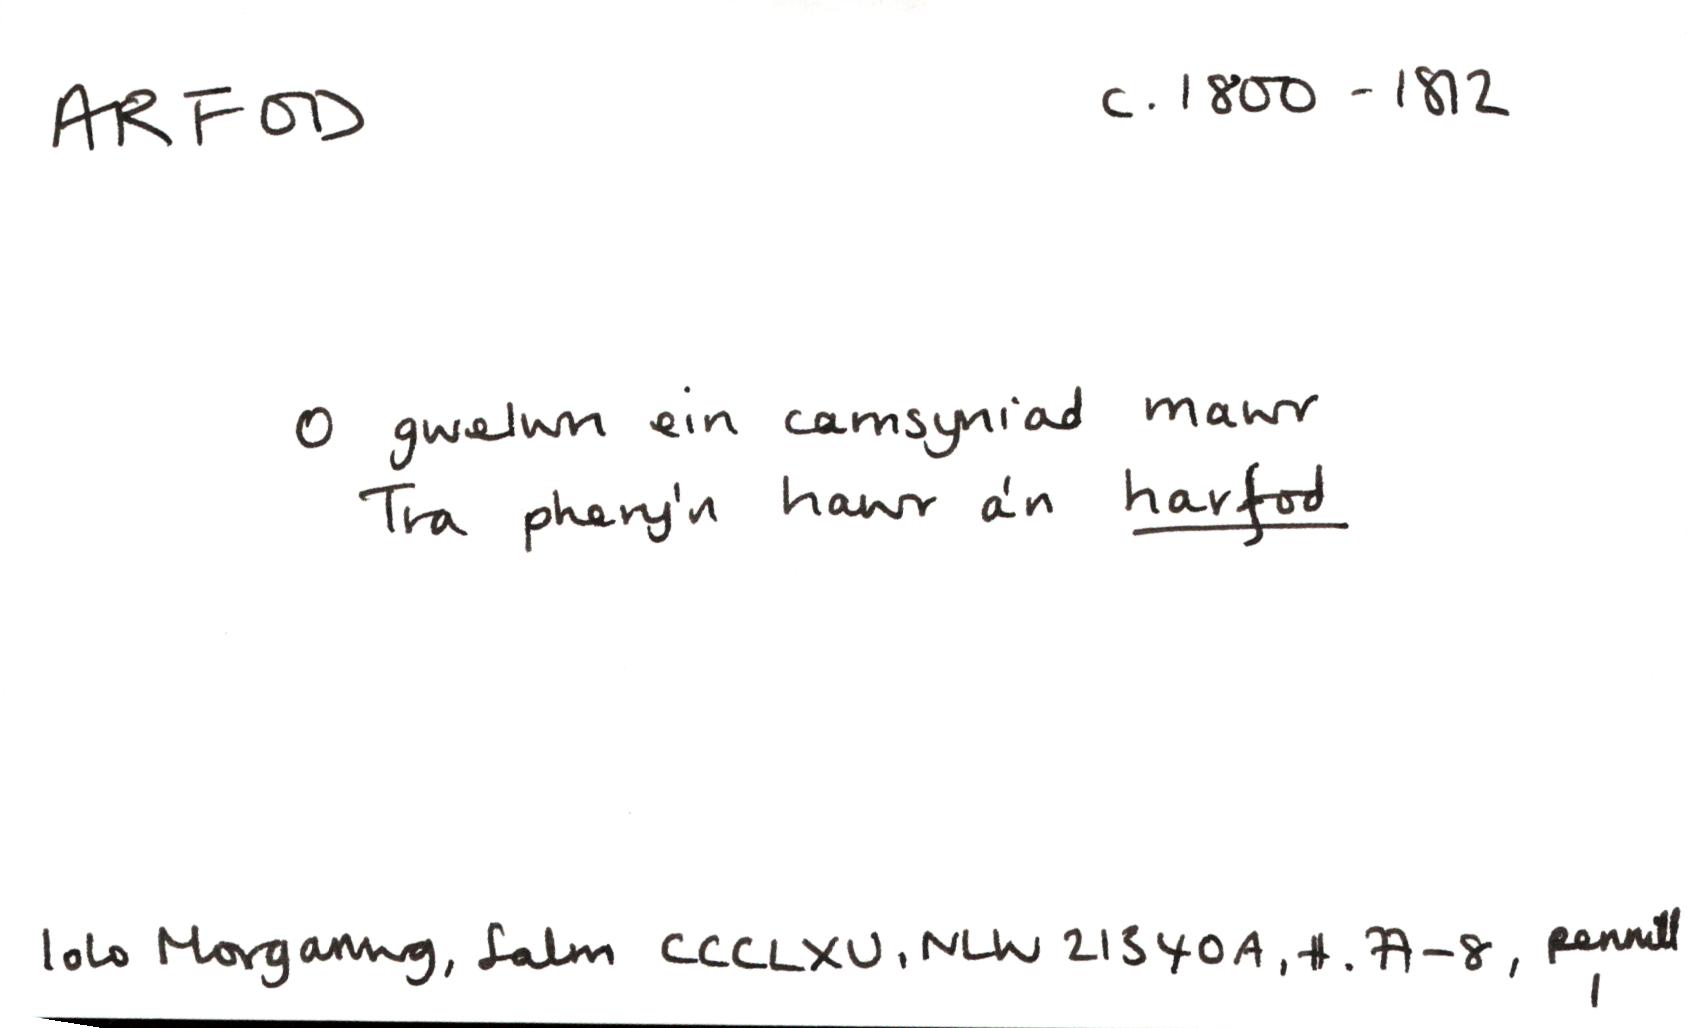 ARFOD
c. 1800 - 1812
O gwelwn ein camsyniad mawr
Tra phery'n hawr a'n harfod
Iolo Morganwg, Salm CCCLXV, NLW 21340A, ff. 77-8, pennill
1